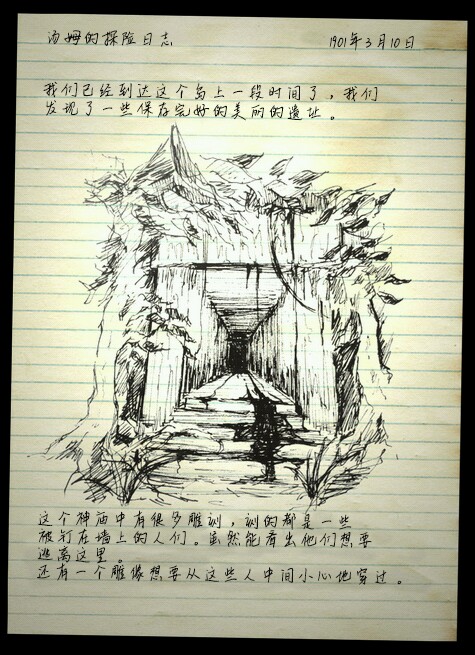 汤姆的探险日志 1901年3月10日
我们已经到达这个岛上一段时间了，我们
发现了一些保存完好的美丽的遗址。
这个神庙中有很多雕刻，刻的都是一些
被钉在墙上的人们。虽然能看出他们想要
逃离这里。
还有一个雕像想要从这些人中间小心地穿过。